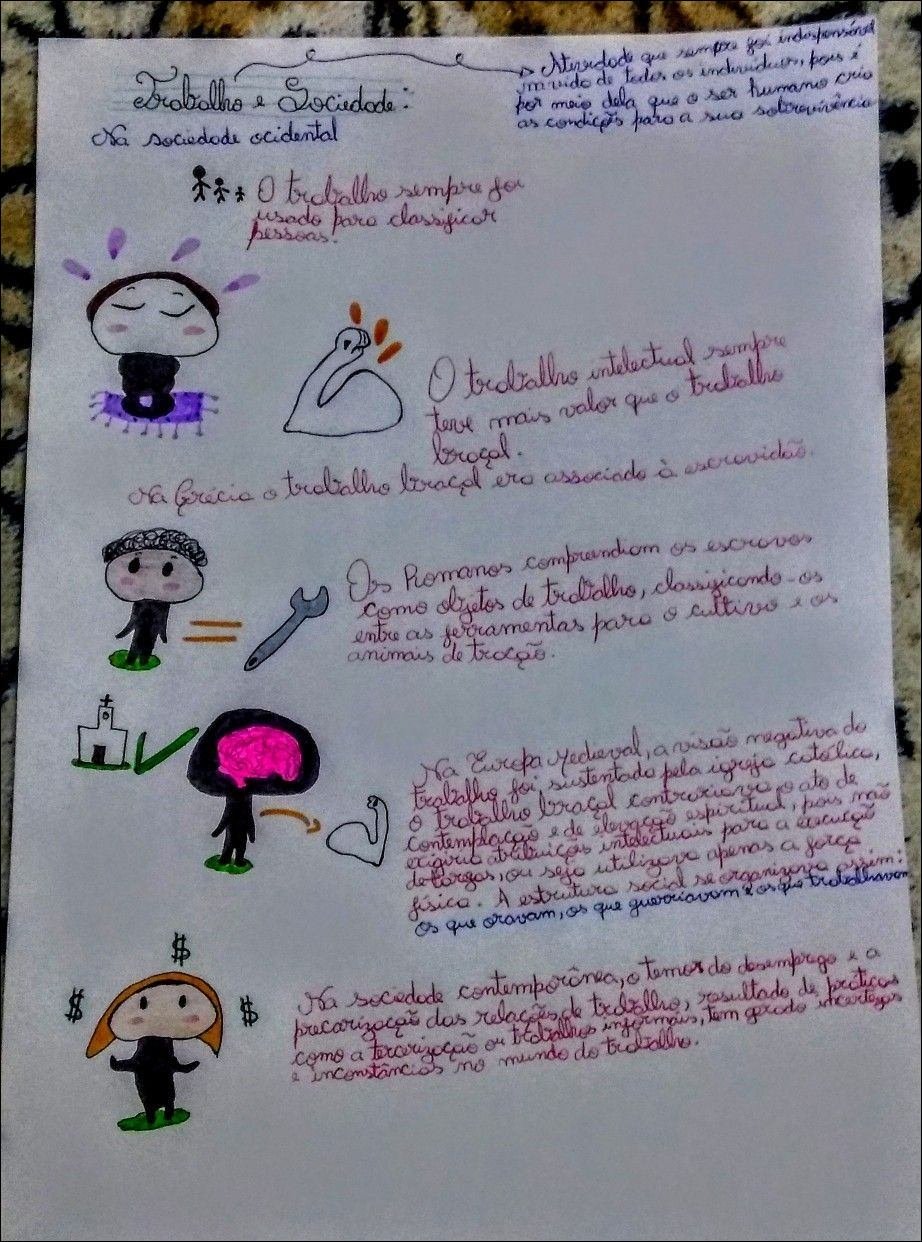 Trabalho e Sociedade:
→ Atividade que sempre foi indispensável
na vida de todos os indivíduos, pois é
por meio dela que o ser humano cria
as condições para a sua sobrevivência
Na sociedade ocidental
O trabalho sempre foi
usado para classificar
pessoas.
O trabalho intelectual sempre
teve mais valor que o trabalho
braçal.
Na Grécia o trabalho braçal era associado à escravidão.
Os Romanos compreendiam os escravos
como objetos de trabalho, classificando-os
entre as ferramentas para o cultivo e os
animais de tração.
Na Europa Medieval, a visão negativa do
trabalho foi sustentada pela igreja católica,
o trabalho braçal contrariava o ato de
contemplação e de elevação espiritual, pois não
exigiria atribuições intelectuais para a execução
de cargas, ou seja utilizava apenas a força
física. A estrutura social se organizava assim:
os que oravam, os que guerriavam e os que trabalhavam
$
$ $
Na sociedade contemporânea, o temor do desemprego e a
precarização das relações de trabalho, resultado de práticas
como a terceirização ou trabalhos informais, tem gerado incertezas
e inconstâncias no mundo do trabalho.